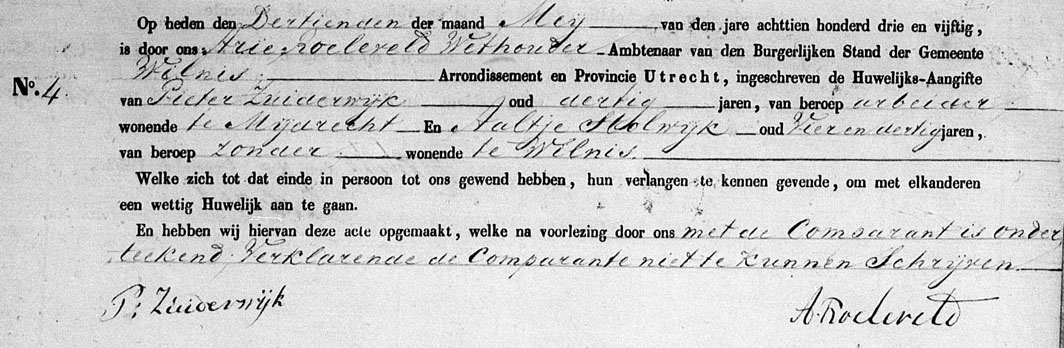 Op heden den Dertienden der maand Meij van den jare achttien honderd drie en vijftig,
is door ons Arie Roeleveld Wethouder Ambtenaar van den Burgerlijken Stand der Gemeente
Wilnis Arrondissement en Provincie Utrecht, ingeschreven de Huwelijks-Aangifte
No. 4. van Pieter Zuiderwijk oud dertig jaren, van beroep arbeider
wonende te Mijdrecht En Aaltje Holwijk oud Vier en dertig jaren,
van beroep zonder wonende te Wilnis.
Welke zich tot dat einde in persoon tot ons gewend hebben, hun verlangen te kennen gevende, om met elkanderen
een wettig Huwelijk aan te gaan.
En hebben wij hiervan deze acte opgemaakt, welke na voorlezing door ons met de Comparant is onder
teekend Verklarende de Comparante niet te kunnen Schrijven
P: Zuiderwijk A. Roeleveld